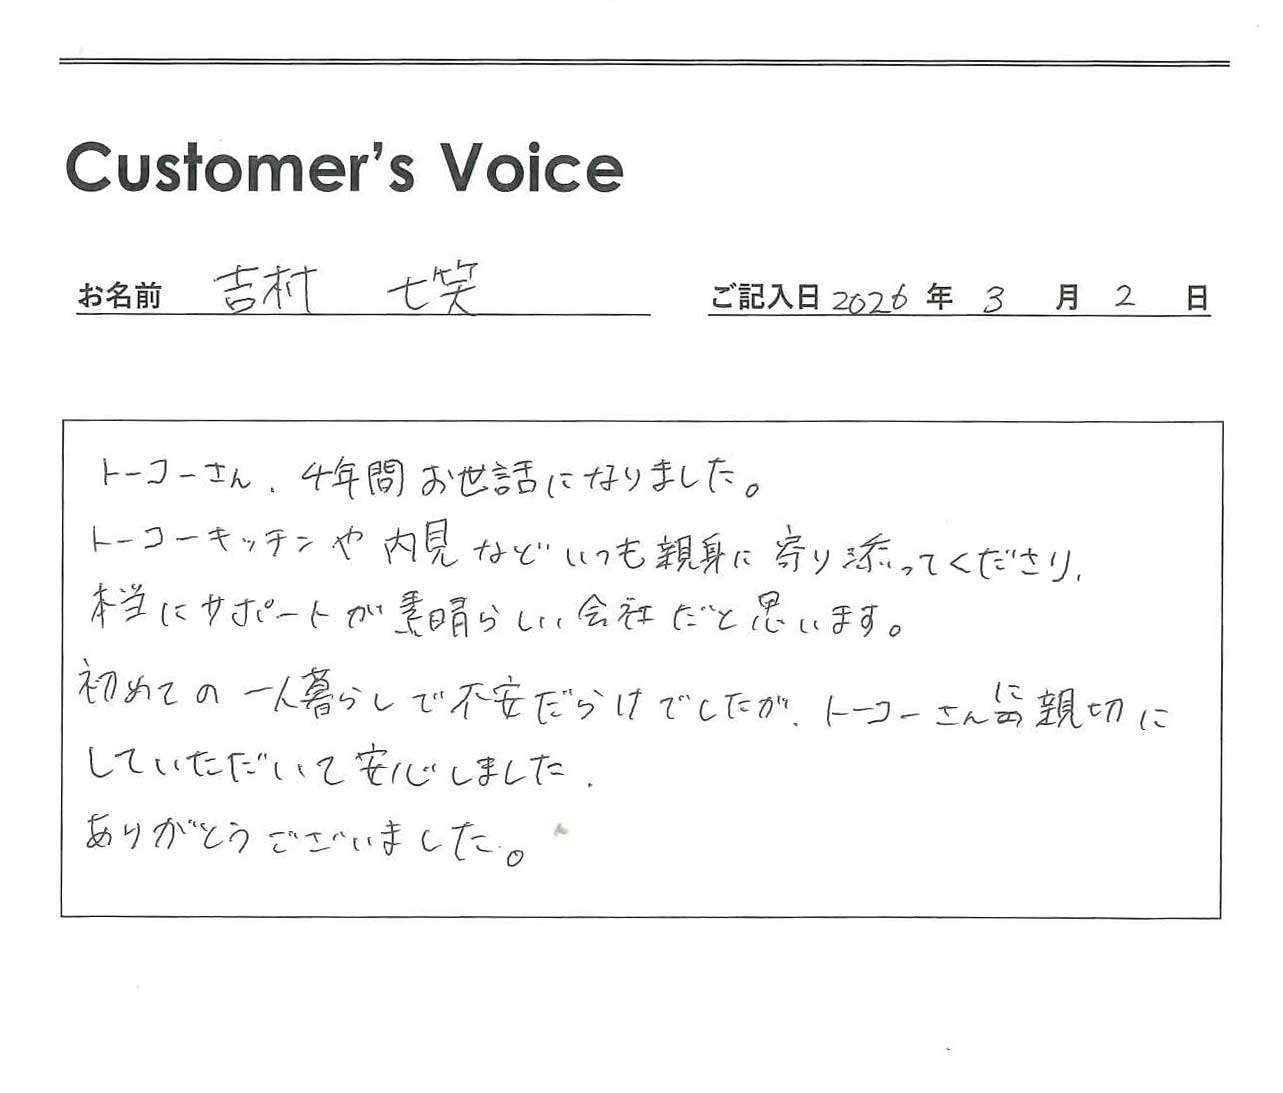 Customer's Voice
お名前 吉村 七笑 ご記入日 2026 年 3 月 2 日
トーコーさん、4年間お世話になりました。
トーコーキッチンや内見などいつも親身に寄り添ってくださり、
本当にサポートが素晴らしい会社だと思います。
初めての一人暮らしで不安だらけでしたが、トーコーさんに親切に
していただいて安心しました。
ありがとうございました。